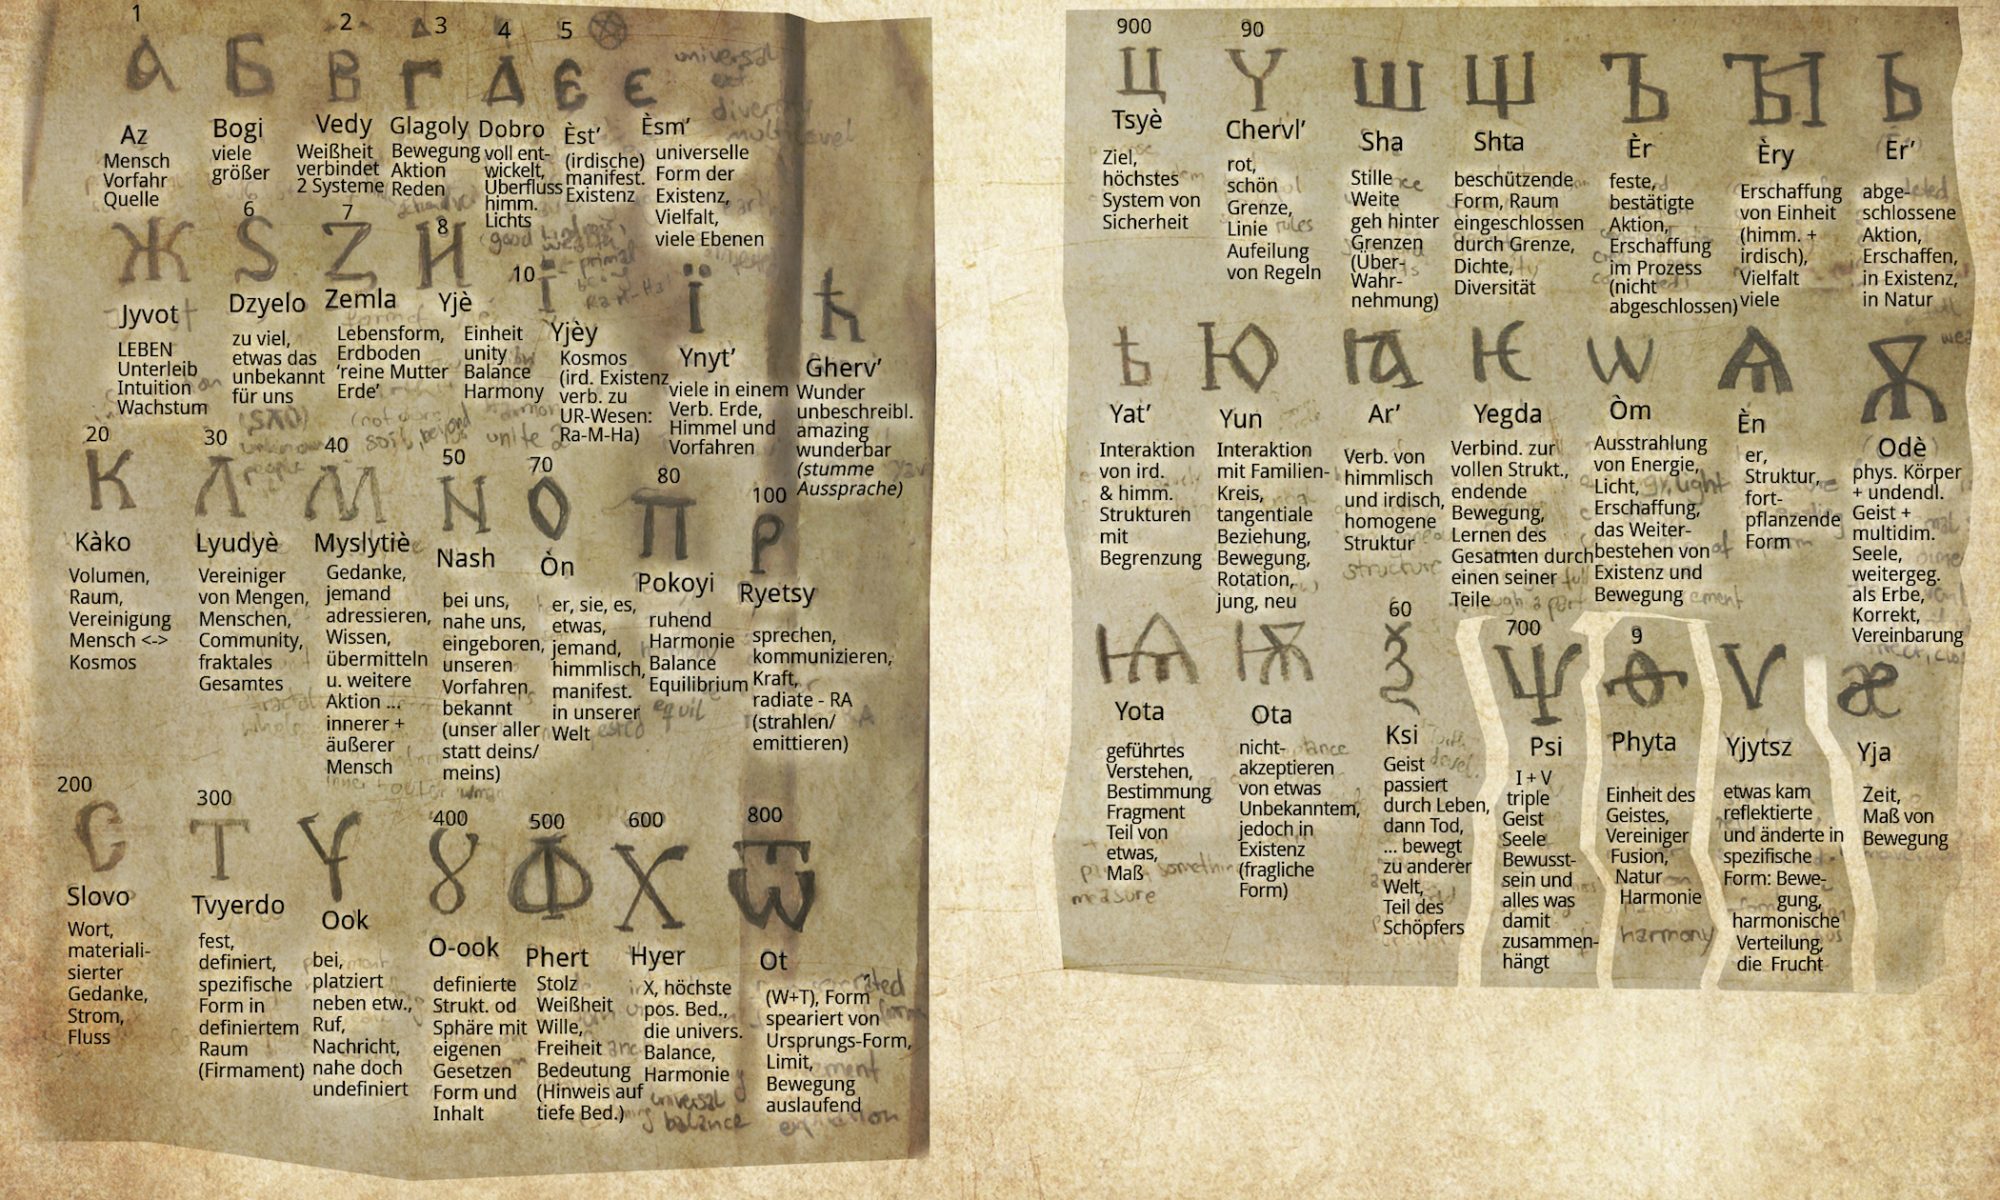 1
А
Az
Mensch
Vorfahr
Quelle
Б
Bogi
viele
größer
2
В
Vedy
Weißheit
verbindet
2 Systeme
3
Г
Glagoly
Bewegung
Aktion
Reden
4
Д
Dobro
voll ent-
wickelt,
Überfluss
himm.
Lichts
5
Є
Èst’
(irdische)
manifest.
Existenz
є
Èsm’
universelle
Form der
Existenz,
Vielfalt,
viele Ebenen
universal
Ж
Jyvot
LEBEN
Unterleib
Intuition
Wachstum
6
Ѕ
Dzyelo
zu viel,
etwas das
unbekannt
für uns
7
Z
Zemla
Lebensform,
Erdboden
‘reine Mutter
Erde’
8
И
Yjè
Einheit
unity
Balance
Harmony
10
Ї
Yjèy
Kosmos
(ird. Existenz
verb. zu
UR-Wesen:
Ra-M-Ha)
ї
Ynyt’
viele in einem
Verb. Erde,
Himmel und
Vorfahren
Ћ
Gherv’
Wunder
unbeschreibl.
amazing
wunderbar
(stumme
Aussprache)
20
К
Kàko
Volumen,
Raum,
Vereinigung
Mensch <->
Kosmos
30
Л
Lyudyè
Vereiniger
von Mengen,
Menschen,
Community,
fraktales
Gesamtes
40
М
Myslytiè
Gedanke,
jemand
adressieren,
Wissen,
übermitteln
u. weitere
Aktion ...
innerer +
äußerer
Mensch
50
N
Nash
bei uns,
nahe uns,
eingeboren,
unseren
Vorfahren
bekannt
(unser aller
statt deins/
meins)
70
О
Òn
er, sie, es,
etwas,
jemand,
himmlisch,
manifest.
in unserer
Welt
80
П
Pokoyi
ruhend
Harmonie
Balance
Equilibrium
equil
100
Р
Ryetsy
sprechen,
kommunizieren,
Kraft,
radiate - RA
(strahlen/
emittieren)
200
С
Slovo
Wort,
materiali-
sierter
Gedanke,
Strom,
Fluss
300
Т
Tvyerdo
fest,
definiert,
spezifische
Form in
definiertem
Raum
(Firmament)
Ook
bei,
platziert
neben etw.,
Ruf,
Nachricht,
nahe doch
undefiniert
400
O-ook
definierte
Strukt. od
Sphäre mit
eigenen
Gesetzen
Form und
Inhalt
500
Ф
Phert
Stolz
Weißheit
Wille,
Freiheit
Bedeutung
(Hinweis auf
tiefe Bed.)
600
Х
Hyer
X, höchste
pos. Bed.,
die univers.
Balance,
Harmonie
universal
balance
800
Ѿ
Ot
(W+T), Form
speariert von
Ursprungs-Form,
Limit,
Bewegung
auslaufend
900
Ц
Tsyè
Ziel,
höchstes
System von
Sicherheit
90
Ү
Chervl’
rot,
schön
Grenze,
Linie
Aufeilung
von Regeln
Ш
Sha
Stille
Weite
geh hinter
Grenzen
(Über-
Wahr-
nehmung)
Щ
Shta
beschützende
Form, Raum
eingeschlossen
durch Grenze,
Dichte,
Diversität
Ъ
Èr
feste,
bestätigte
Aktion,
Erschaffung
im Prozess
(nicht
abgeschlossen)
ЪІ
Èry
Erschaffung
von Einheit
(himm. +
irdisch),
Vielfalt
viele
Ь
Èr’
abge-
schlossene
Aktion,
Erschaffen,
in Existenz,
in Natur
Ѣ
Yat’
Interaktion
von ird.
& himm.
Strukturen
mit
Begrenzung
Ю
Yun
Interaktion
mit Familien-
Kreis,
tangentiale
Beziehung,
Bewegung,
Rotation,
jung, neu
Ꙗ
Ar’
Verb. von
himmlisch
und irdisch,
homogene
Struktur
structure
Ѥ
Yegda
Verbind. zur
vollen Strukt.,
endende
Bewegung,
Lernen des
Gesamten durch
einen seiner
Teile
Ѡ
Òm
Ausstrahlung
von Energie,
Licht,
Erschaffung,
das Weiter-
bestehen von
Existenz und
Bewegung
Ѧ
Èn
er,
Struktur,
fort-
pflanzende
Form
Ѫ
Odè
phys. Körper
+ undendl.
Geist +
multidim.
Seele,
weitergeg.
als Erbe,
Korrekt,
Vereinbarung
Ѩ
Yota
geführtes
Verstehen,
Bestimmung
Fragment
Teil von
etwas,
Maß
measure
Ѭ
Ota
nicht-
akzeptieren
von etwas
Unbekanntem,
jedoch in
Existenz
(fragliche
Form)
60
Ѯ
Ksi
Geist
passiert
durch Leben,
dann Tod,
... bewegt
zu anderer
Welt,
Teil des
Schöpfers
700
Ѱ
Psi
I + V
triple
Geist
Seele
Bewusst-
sein und
alles was
damit
zusammen-
hängt
9
Ѳ
Phyta
Einheit des
Geistes,
Vereiniger
Fusion,
Natur
Harmonie
harmony
Ѵ
Yjytsz
etwas kam
reflektierte
und änderte in
spezifische
Form: Bewe-
gung,
harmonische
Verteilung,
die Frucht
æ
Yja
Zeit,
Maß von
Bewegung